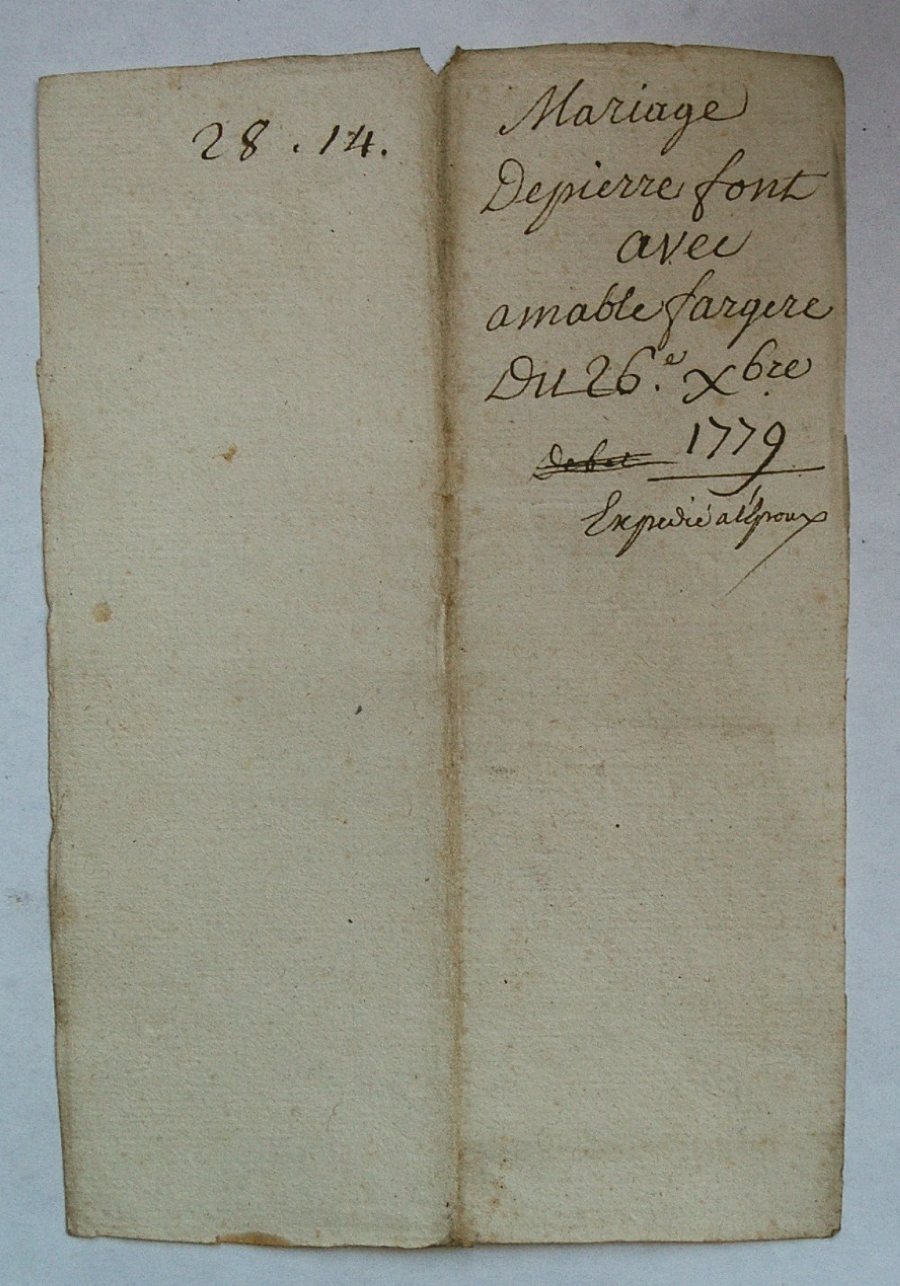 28 . 14.
Mariage
Depierre font
avec
amable fargere
Du 26.e xbre
1779
Expedié a l'Epoux